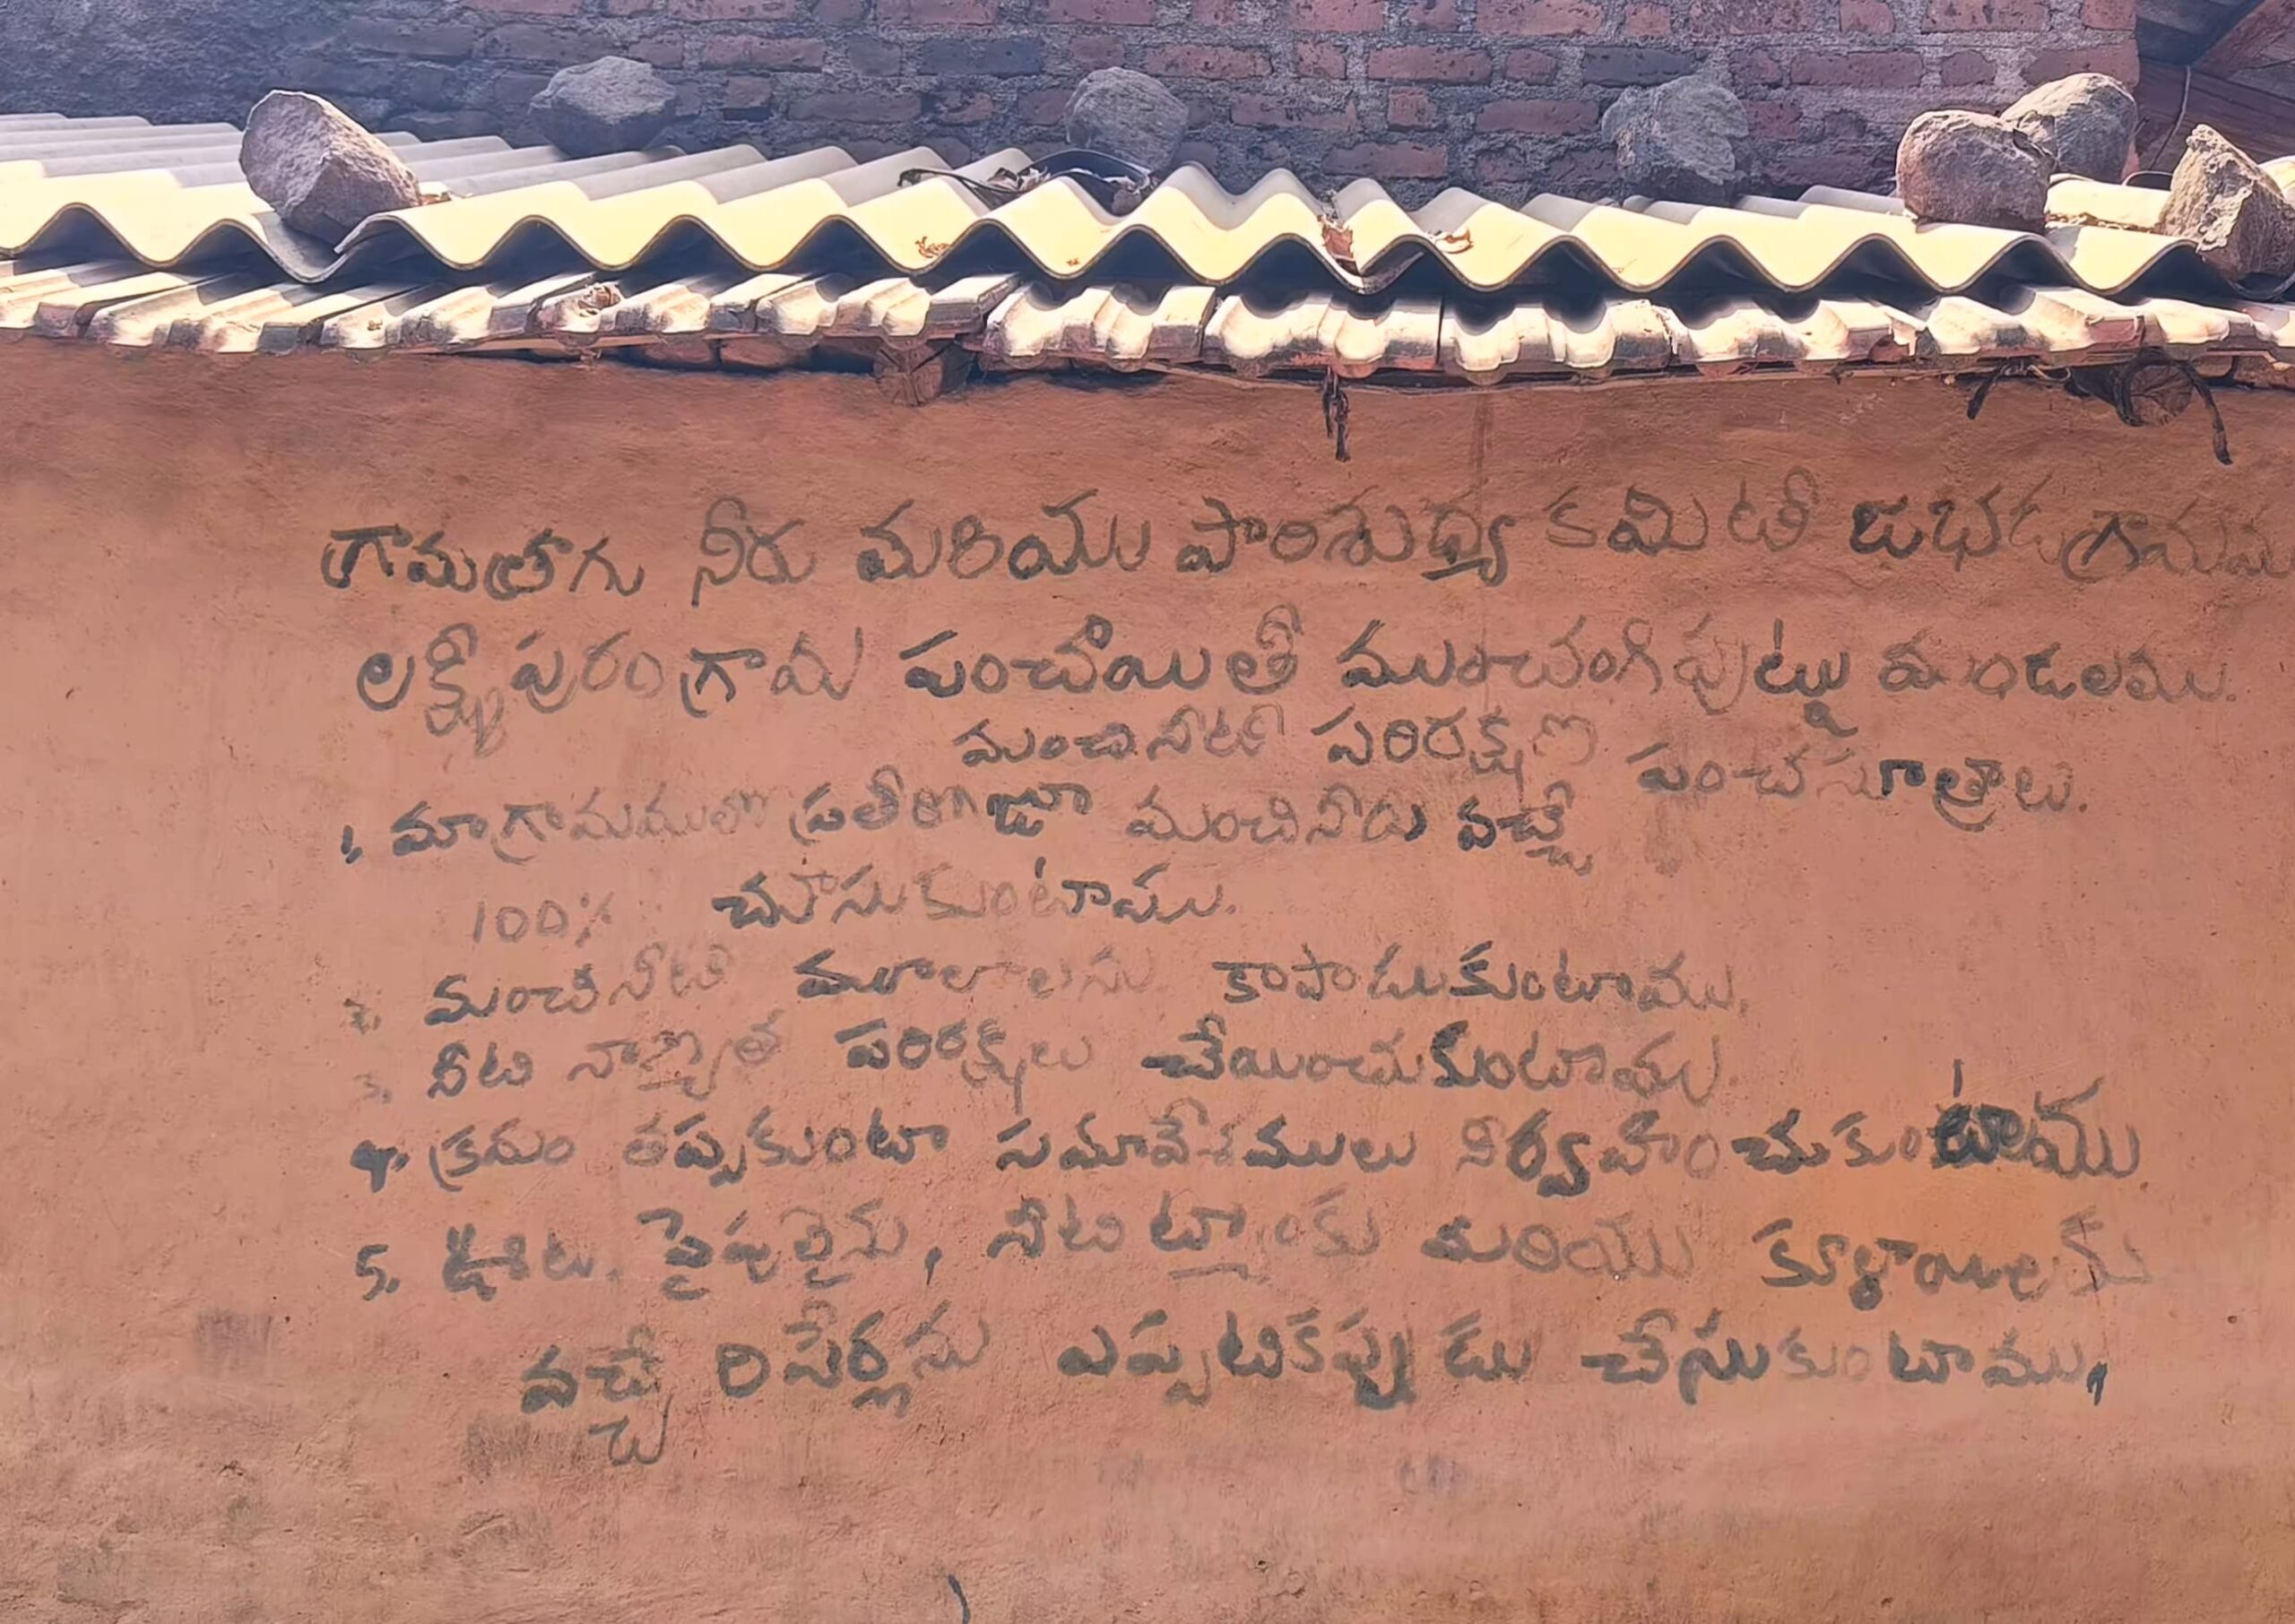 గ్రామత్రాగు నీరు మరియు పారిశుధ్య కమిటీ జభడ గ్రామము
లక్ష్మీపురం గ్రామ పంచాయితీ ముంచంగిపుట్టు మండలము.
మంచినీటి పరిరక్షణ పంచసూత్రాలు.
1. మాగ్రామములో ప్రతీరోజూ మంచినీరు వచ్చే
100% చూసుకుంటాము.
2. మంచినీటి మూలాలను కాపాడుకుంటాము.
3. నీటి నాణ్యత పరీక్షలు చేయించుకుంటాము
4. క్రమం తప్పకుంటా సమావేశములు నిర్వహించుకుంటాము
5. ఊట, పైపులైను, నీటి ట్యాంకు మరియు కూళాయిలకు
వచ్చే రిపేర్లను ఎప్పటికప్పుడు చేసుకుంటాము,